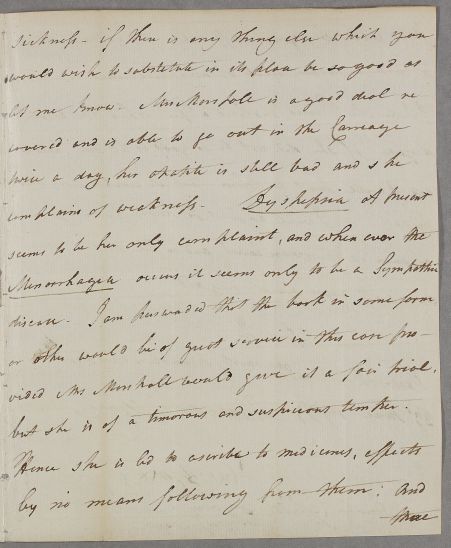 sickness - if there is any thing else which you
would wish to substitute in its place be so good as
let me know. Mrs Marshall is a good deal re
covered and is able to go out in the Carriage
twice a day, her apatite is still bad and she
complains of weakness. Dyspepsia at present
seems to be her only complaint, and when ever the
Menorrhagia occurs it seems only to be a Sympathic
disease. I am perswaded that the bark in some form
or other would be of great service in this case pro-
vided Mrs Marshall would give it a fair trial,
but she is of a timorous and suspicious temper.
Hence she is led to ascribe to medicines, effects
by no means following from them; and